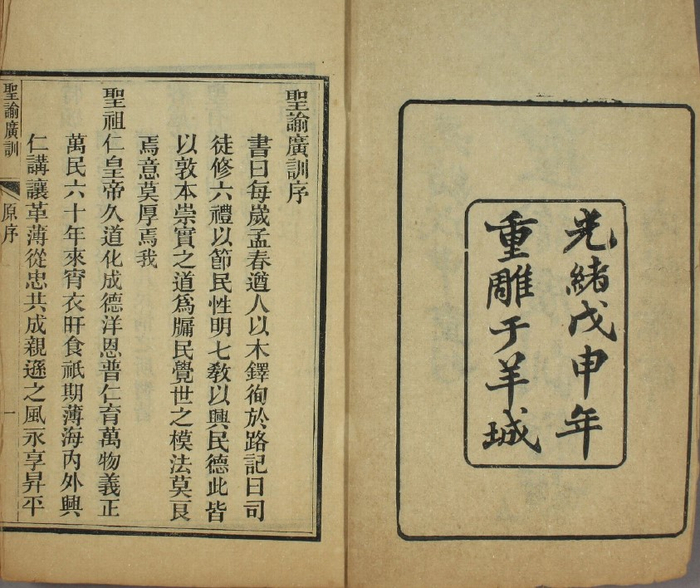 光緒戊申年
重雕于羊城
聖諭廣訓序
書曰每歲孟春遒人以木鐸徇於路記曰司
徒修六禮以節民性明七敎以興民德此皆
以敦本崇實之道爲牖民覺世之模法莫良
焉意莫厚焉我
聖祖仁皇帝久道化成德洋恩普仁育萬物義正
萬民六十年來宵衣旰食祇期薄海內外興
仁講讓革薄從忠共成親遜之風永享昇平
聖諭廣訓
原序
一